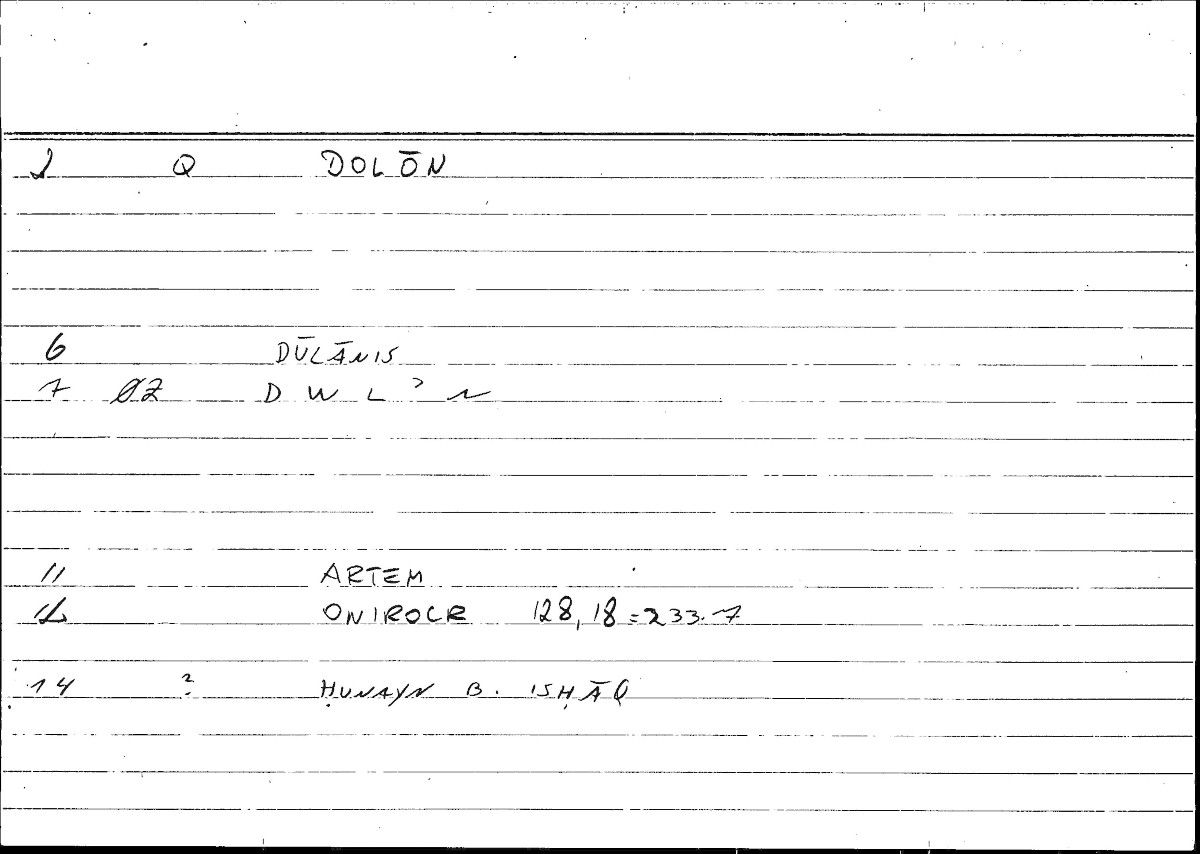 2 Q DOLŌN
6 DŪLĀNIS
7 ØZ D W L ʾ N
11 ARTEM
12 ONIROCR 128,18=233.7
14 ? ḤUNAYN B. ISḤĀQ